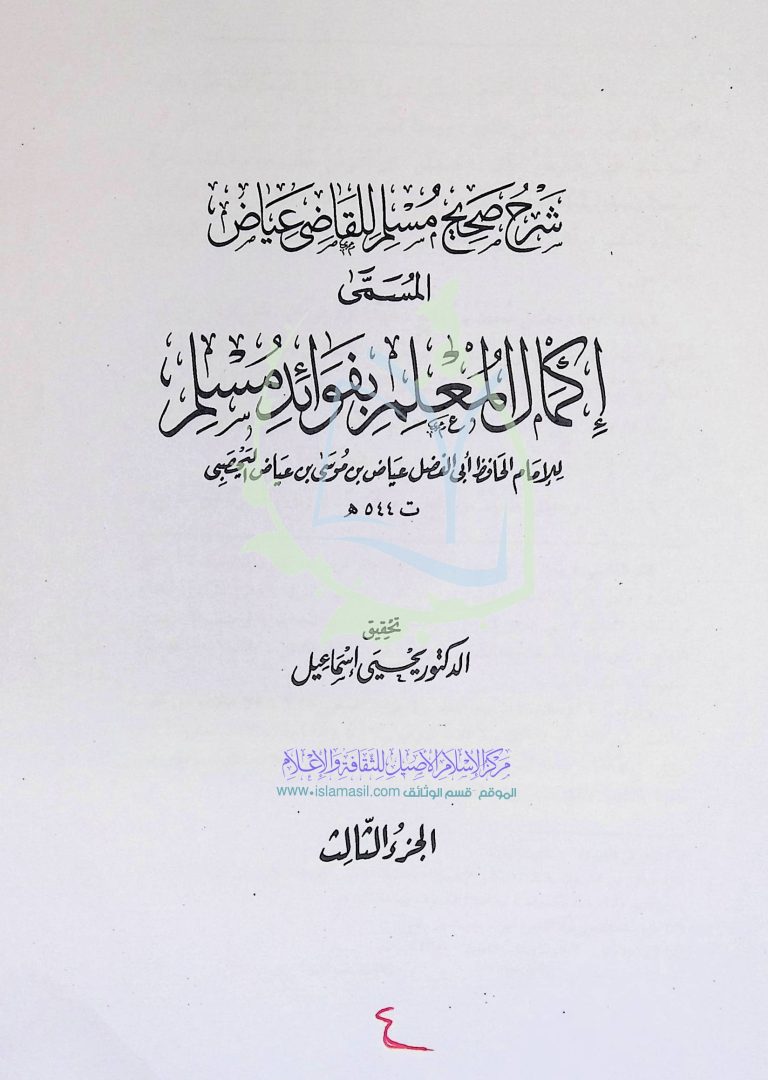 شَرْحُ صَحِيحِ مُسْلِمِ لِلقَاضِى عِيَاض
المُسَمَّى
إِكْمَالَ المُعْلِمِ بِفَوَائِدِ مُسْلِمِ
لِلإِمَام الحَافِظ أَبِى الفَضْل عِيَاض بن مُوسَى بن عِيَاض اليَحْصَبِى
ت ٥٤٤ ه
تحقيق
الدكتور يحيى إسماعيل
مركز الإسلام الأصيل للثقافة والإعلام
الموقع - قسم الوثائق www.islamasil.com
الجزء الثالث
٤